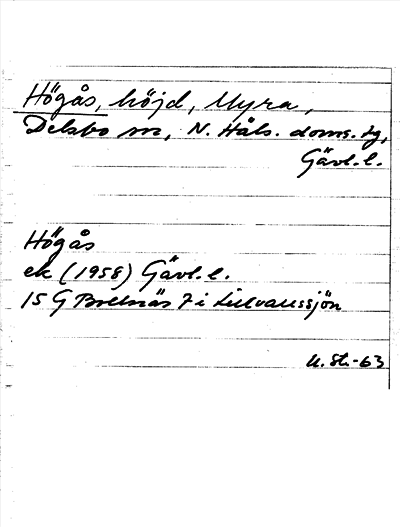 Högås, höjd, Myra,
Delsbo sn, N. Häls. doms. tg,
Gävl. l.
Högås
ek (1958) Gävl. l.
15 G Bollnäs 7 i
U. St. -63